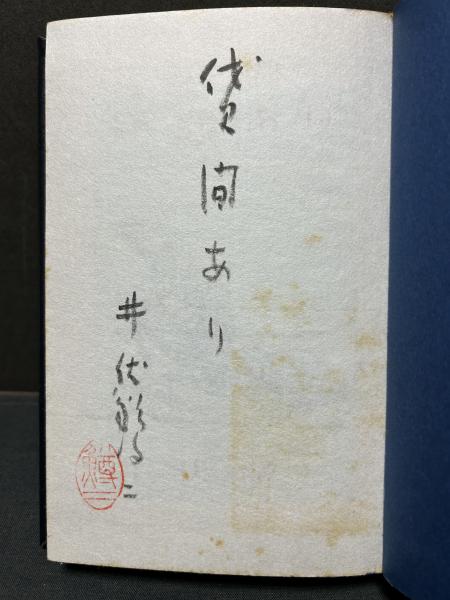 貸間あり
井伏鱒二
鱒二